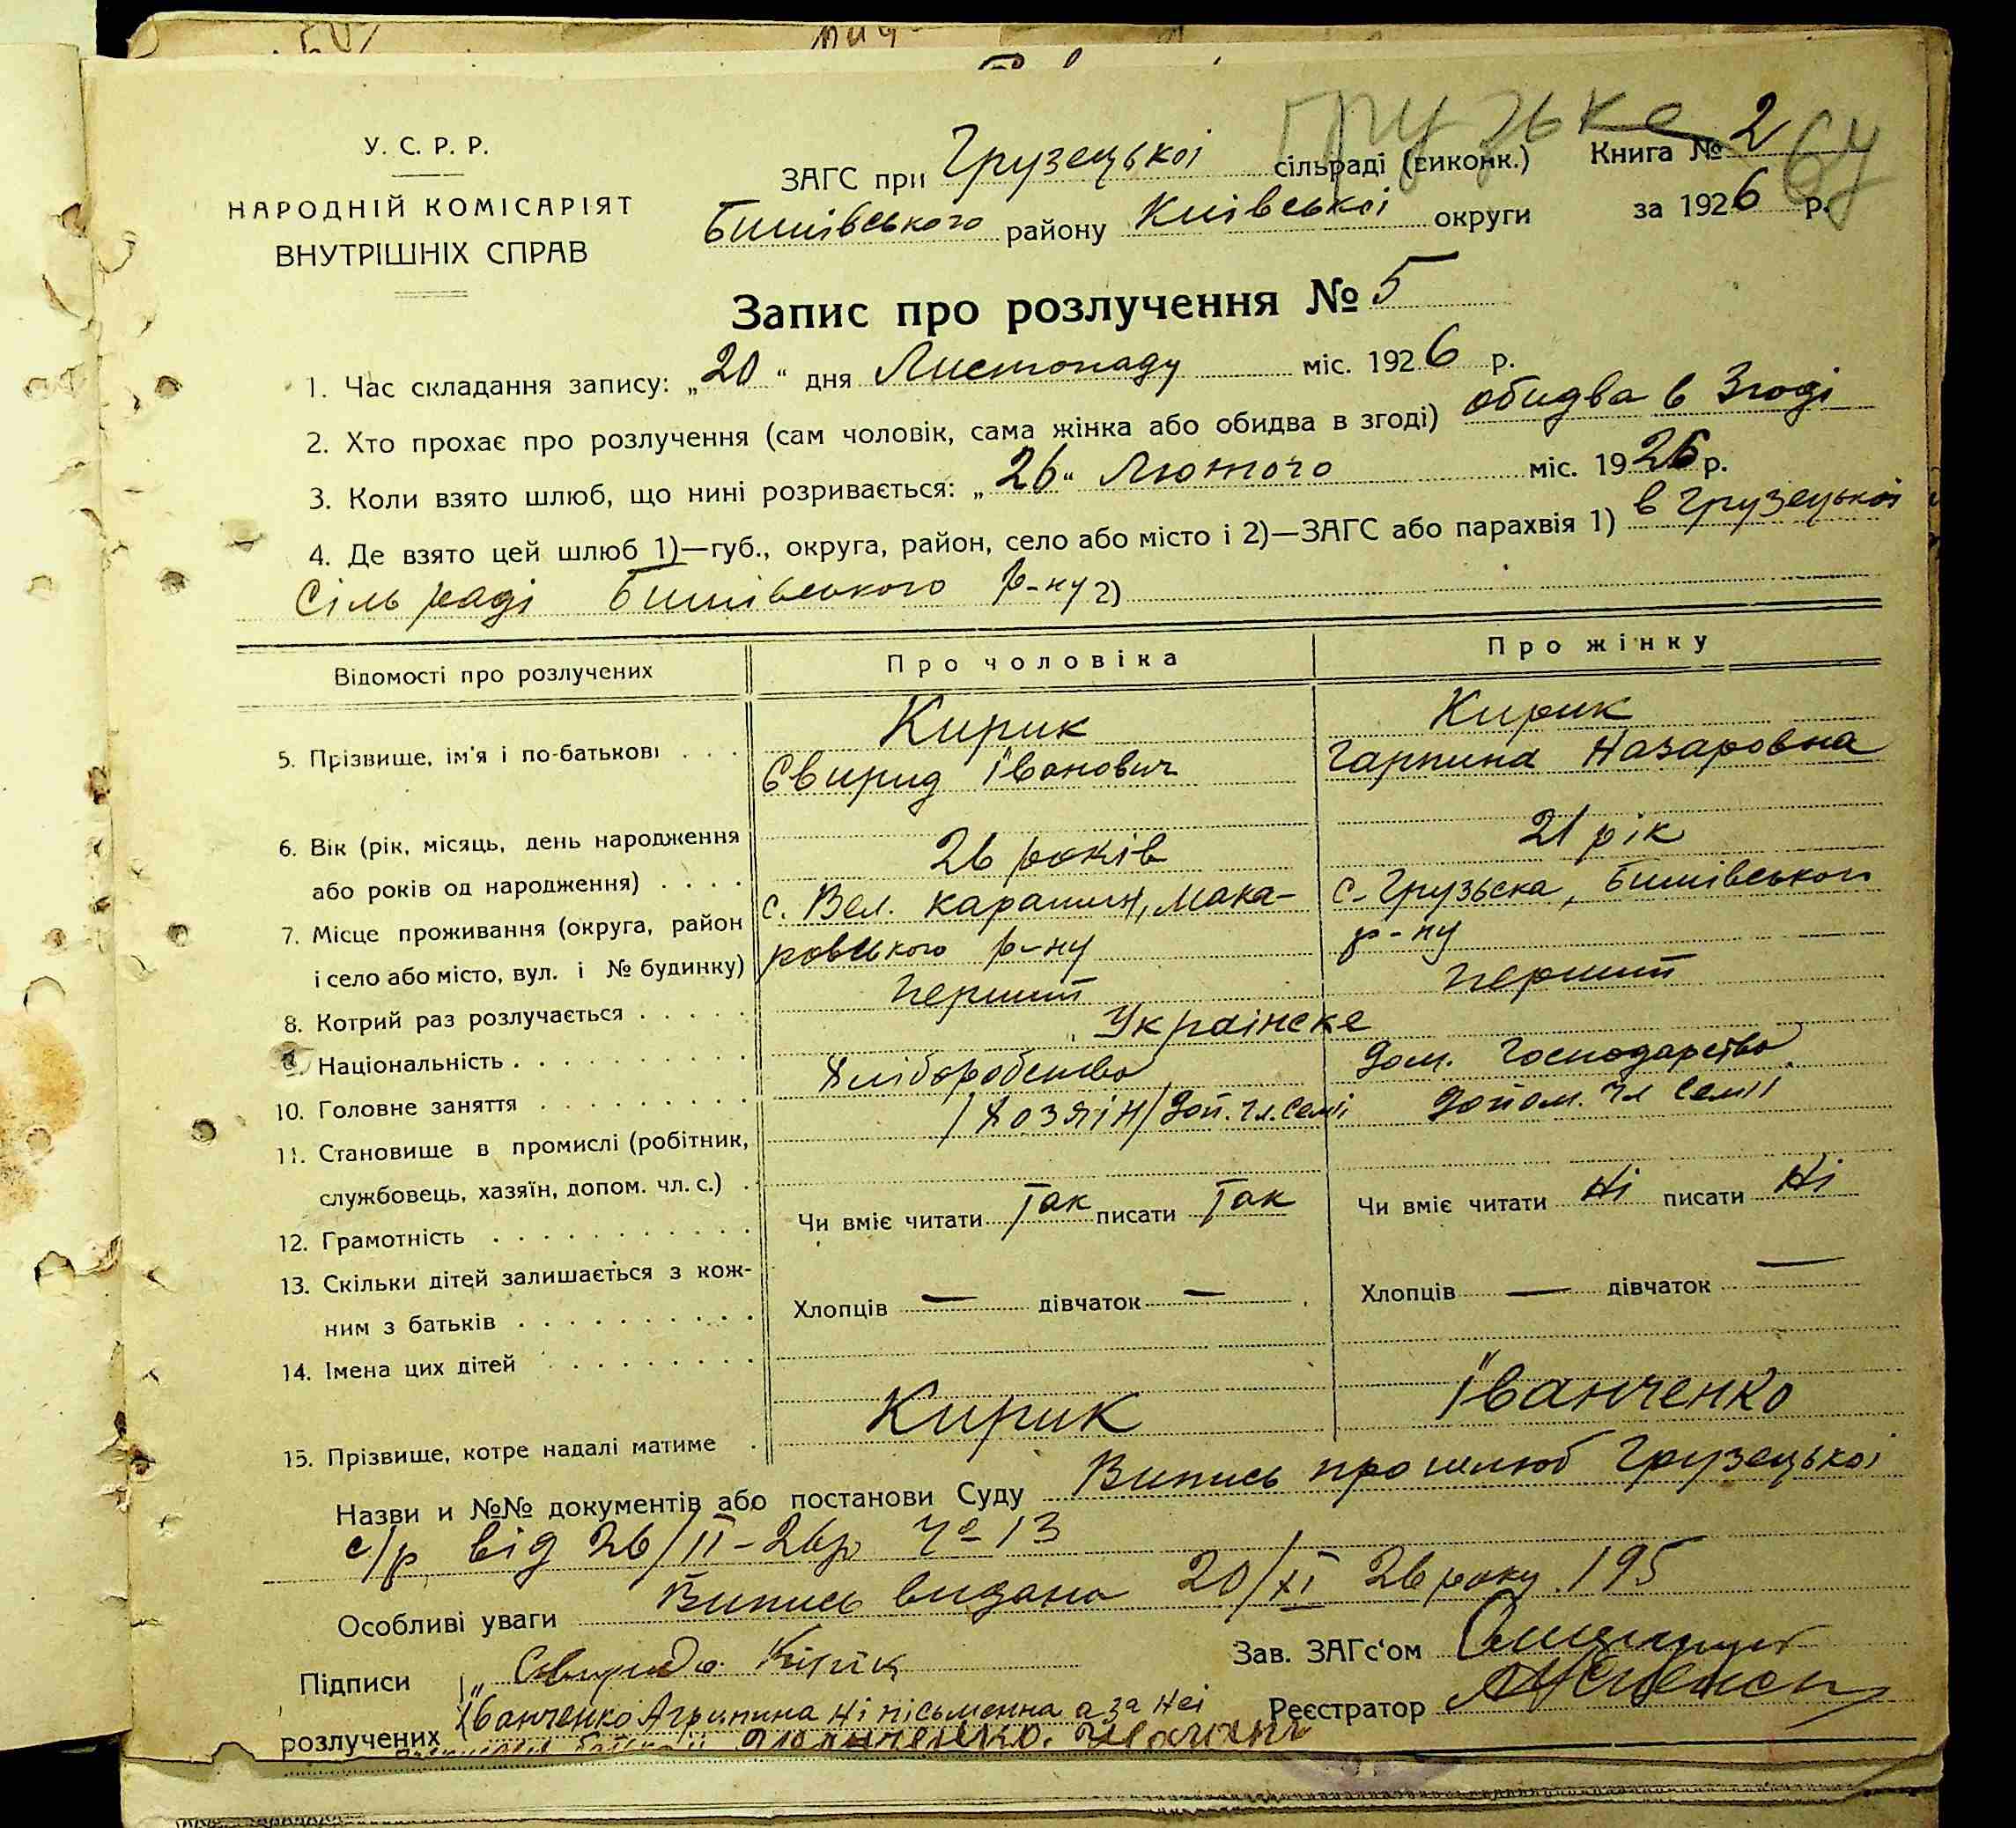 Грузьке 64
У. С. Р. Р.
НАРОДНІЙ КОМІСАРІЯТ
ВНУТРІШНІХ СПРАВ
ЗАГС при Грузецькоі сільраді (виконк.) Книга № 2
Бишівського району Киівськоі округи за 1926 р.
Запис про розлучення № 5
1. Час складання запису: „20“ дня Листопаду міс. 1926 р.
2. Хто прохає про розлучення (сам чоловік, сама жінка або обидва в згоді) обидва в Згоді
3. Коли взято шлюб, що нині розривається: „26“ Лютого міс. 1926 р.
4. Де взято цей шлюб 1)—губ., округа, район, село або місто і 2)—ЗАГС або парахвія 1) в Грузецькоі
Сільраді Бишівського р-ну 2)
Відомості про розлучених Про чоловіка Про жінку
5. Прізвище, ім'я і по-батькові . . . Кирик Кирик
Євирид Іванович Гарпина Назаровна
6. Вік (рік, місяць, день народження
або років од народження) . . . . 26 років 21 рік
7. Місце проживання (округа, район с. Вел. Карашин, Мака- с. Грузьска, Бишівського
і село або місто, вул. і № будинку) ровського р-ну р-ну
8. Котрий раз розлучається . . . . . Перший Перший
9. Національність . . . . . . . . . . Украінске
10. Головне заняття . . . . . . . . . Хліборобство Дом. Господарство
11. Становище в промислі (робітник, /Хозяін/ Доп. чл. семіі Допом. чл семіі
службовець, хазяїн, допом. чл. с.) .
12. Грамотність . . . . . . . . . . . Чи вміє читати Так писати Так Чи вміє читати Ні писати Ні
13. Скільки дітей залишається з кож-
ним з батьків . . . . . . . . . . Хлопців — дівчаток — Хлопців — дівчаток —
14. Імена цих дітей . . . . . . . . .
15. Прізвище, котре надалі матиме . Кирик Іванченко
Назви и №№ документів або постанови Суду Випись про шлюб Грузецькоі
с/р від 26/II-26р № 13
Особливі уваги Випись видана 20/XI 26 року 195
Підписи Свиридо Кірік Зав. ЗАГс'ом
розлучених Іванченко Агрипина Ні пісьменна а за Неі Реєстратор